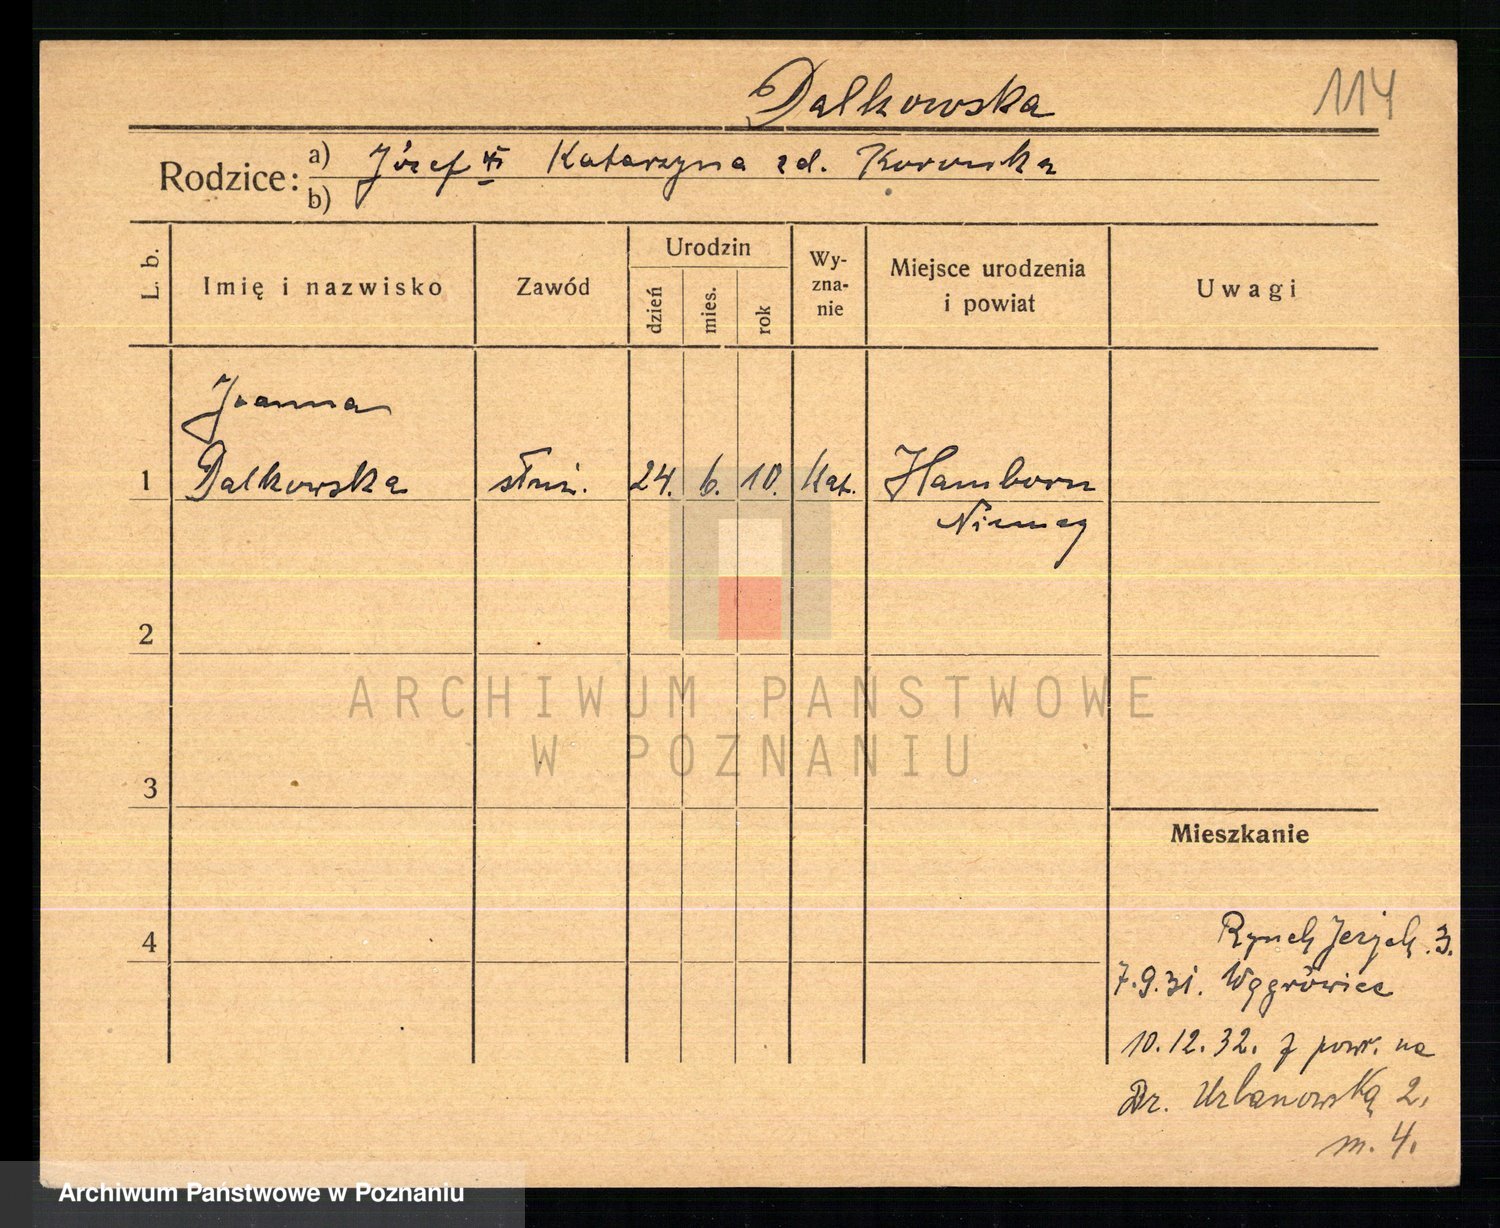 Dalkowska
114
Rodzice: a) Józef i Katarzyna zd. Korowska
b)
L. b.
Imię i nazwisko
Zawód
Urodzin
dzień
mies.
rok
Wy-
zna-
nie
Miejsce urodzenia
i powiat
Uwagi
Joanna
1 Dalkowska służ. 24. 6. 10. Kat. Hamborn
Niemcy
2
3
4
ARCHIWUM PAŃSTWOWE
W POZNANIU
Mieszkanie
Rynek Jeżyck. 3.
7.9.31. Wągrówiec
10.12.32. z powr. na
Dr. Urbanowską 2.
m. 4.
Archiwum Państwowe w Poznaniu